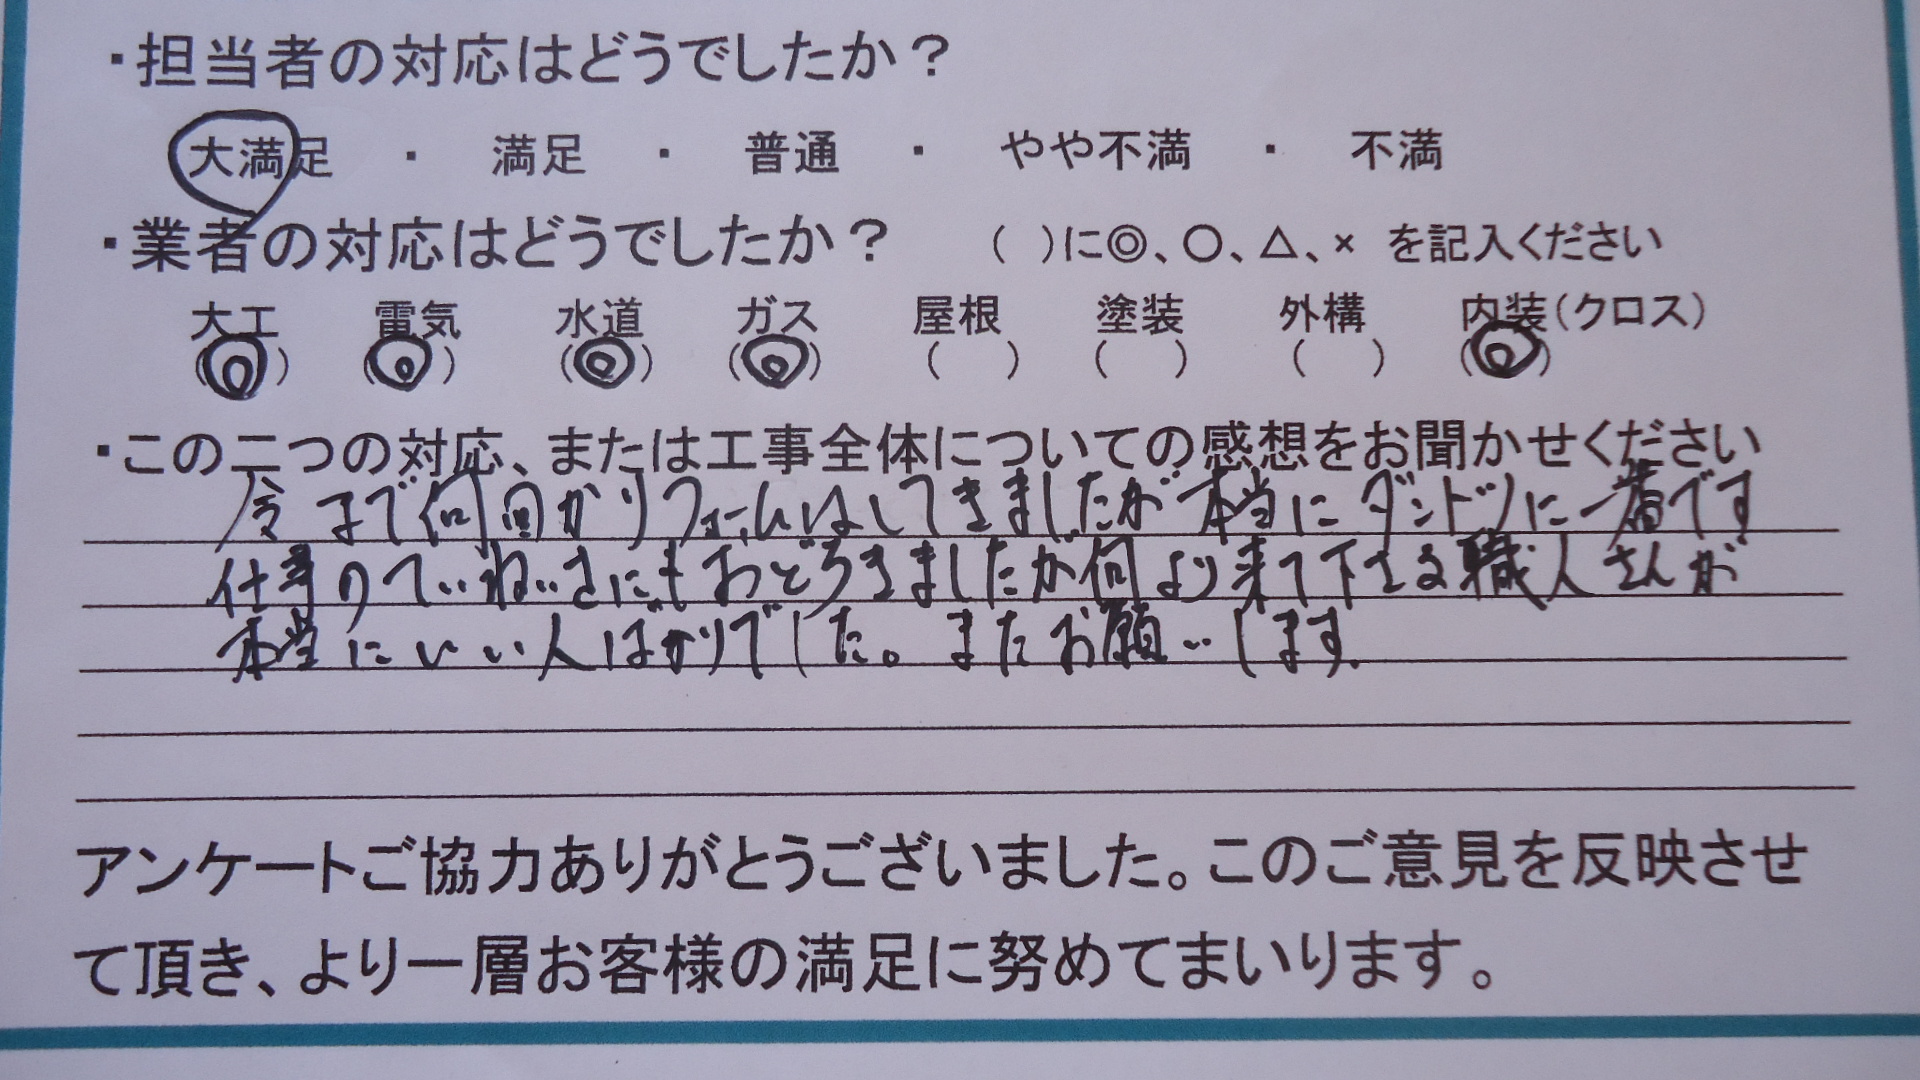 ・担当者の対応はどうでしたか？
大満足　・　満足　・　普通　・　やや不満　・　不満
・業者の対応はどうでしたか？　（　）に◎、〇、△、×　を記入ください
大工　電気　水道　ガス　屋根　塗装　外構　内装（クロス）
（◎）（◎）（◎）（◎）（　）（　）（　）（◎）
・この二つの対応、または工事全体についての感想をお聞かせください
今まで何回かリフォームはしてきましたが本当にダントツに一番です
仕事のていねいさにもおどろきましたが何より来て下さる職人さんが
本当にいい人ばかりでした。またお願いします.
アンケートご協力ありがとうございました。このご意見を反映させ
て頂き、より一層お客様の満足に努めてまいります。